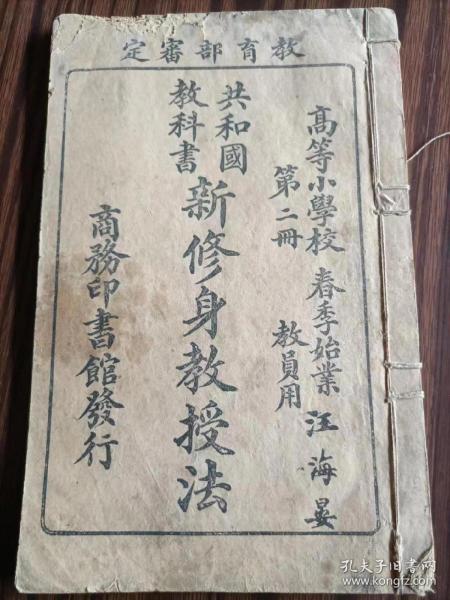 教育部審定
高等小學校 春季始業 汪海晏
第二冊 教員用
共和國
教科書
新修身教授法
商務印書館發行
孔夫子旧书网
www.kongfz.com